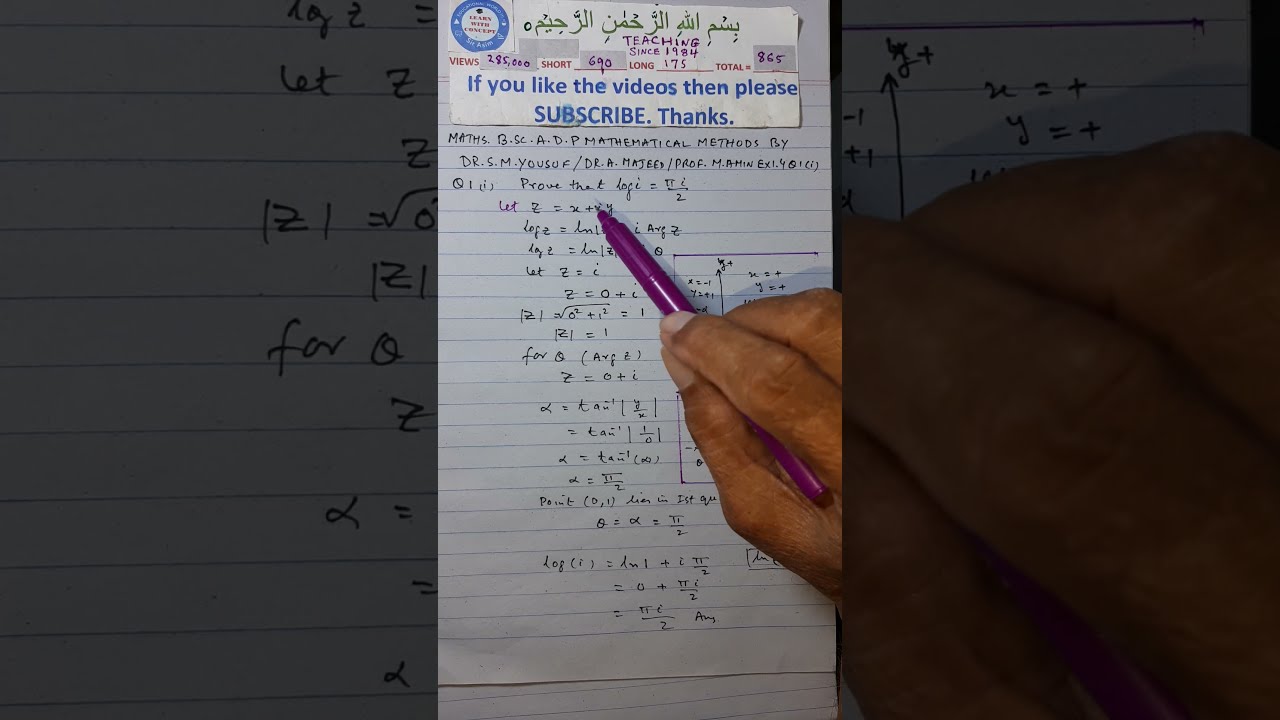 EDUCATIONAL WORLD
LEARN
WITH
CONCEPT
Sir Asim
بِسْمِ اللهِ الرَّحْمٰنِ الرَّحِيْمِ
TEACHING
SINCE 1984
VIEWS 285,000 SHORT 690 LONG 175 TOTAL = 865
If you like the videos then please
SUBSCRIBE. Thanks.
MATHS. B.SC. A.D.P MATHEMATICAL METHODS BY
DR.S.M.YOUSUF/DR.A.MAJEED/PROF. M.AMIN EX1.4 Q1(i)
Q1,i) Prove that log i = πi/2
Let Z = x + iy
log z = ln|z i Arg Z
log z = ln|z| θ
let Z = i
Z = 0 + i
|Z| = √0² + 1² = 1
|Z| = 1
for θ (Arg z)
Z = 0 + i
α = tan⁻¹ |y/x|
= tan⁻¹ |1/0|
α = tan⁻¹ (∞)
α = π/2
Point (0,1) lies in Ist qu
θ = α = π/2
log(i) = ln1 + i π/2
= 0 + πi/2
= πi/2 Ans
y+
x = -1
y = +1
x = +
y = +
log z =
let Z
Z
|Z| = √0
|Z|
for θ
Z
α =
=
α
y+
-1
+1
x = +
y = +